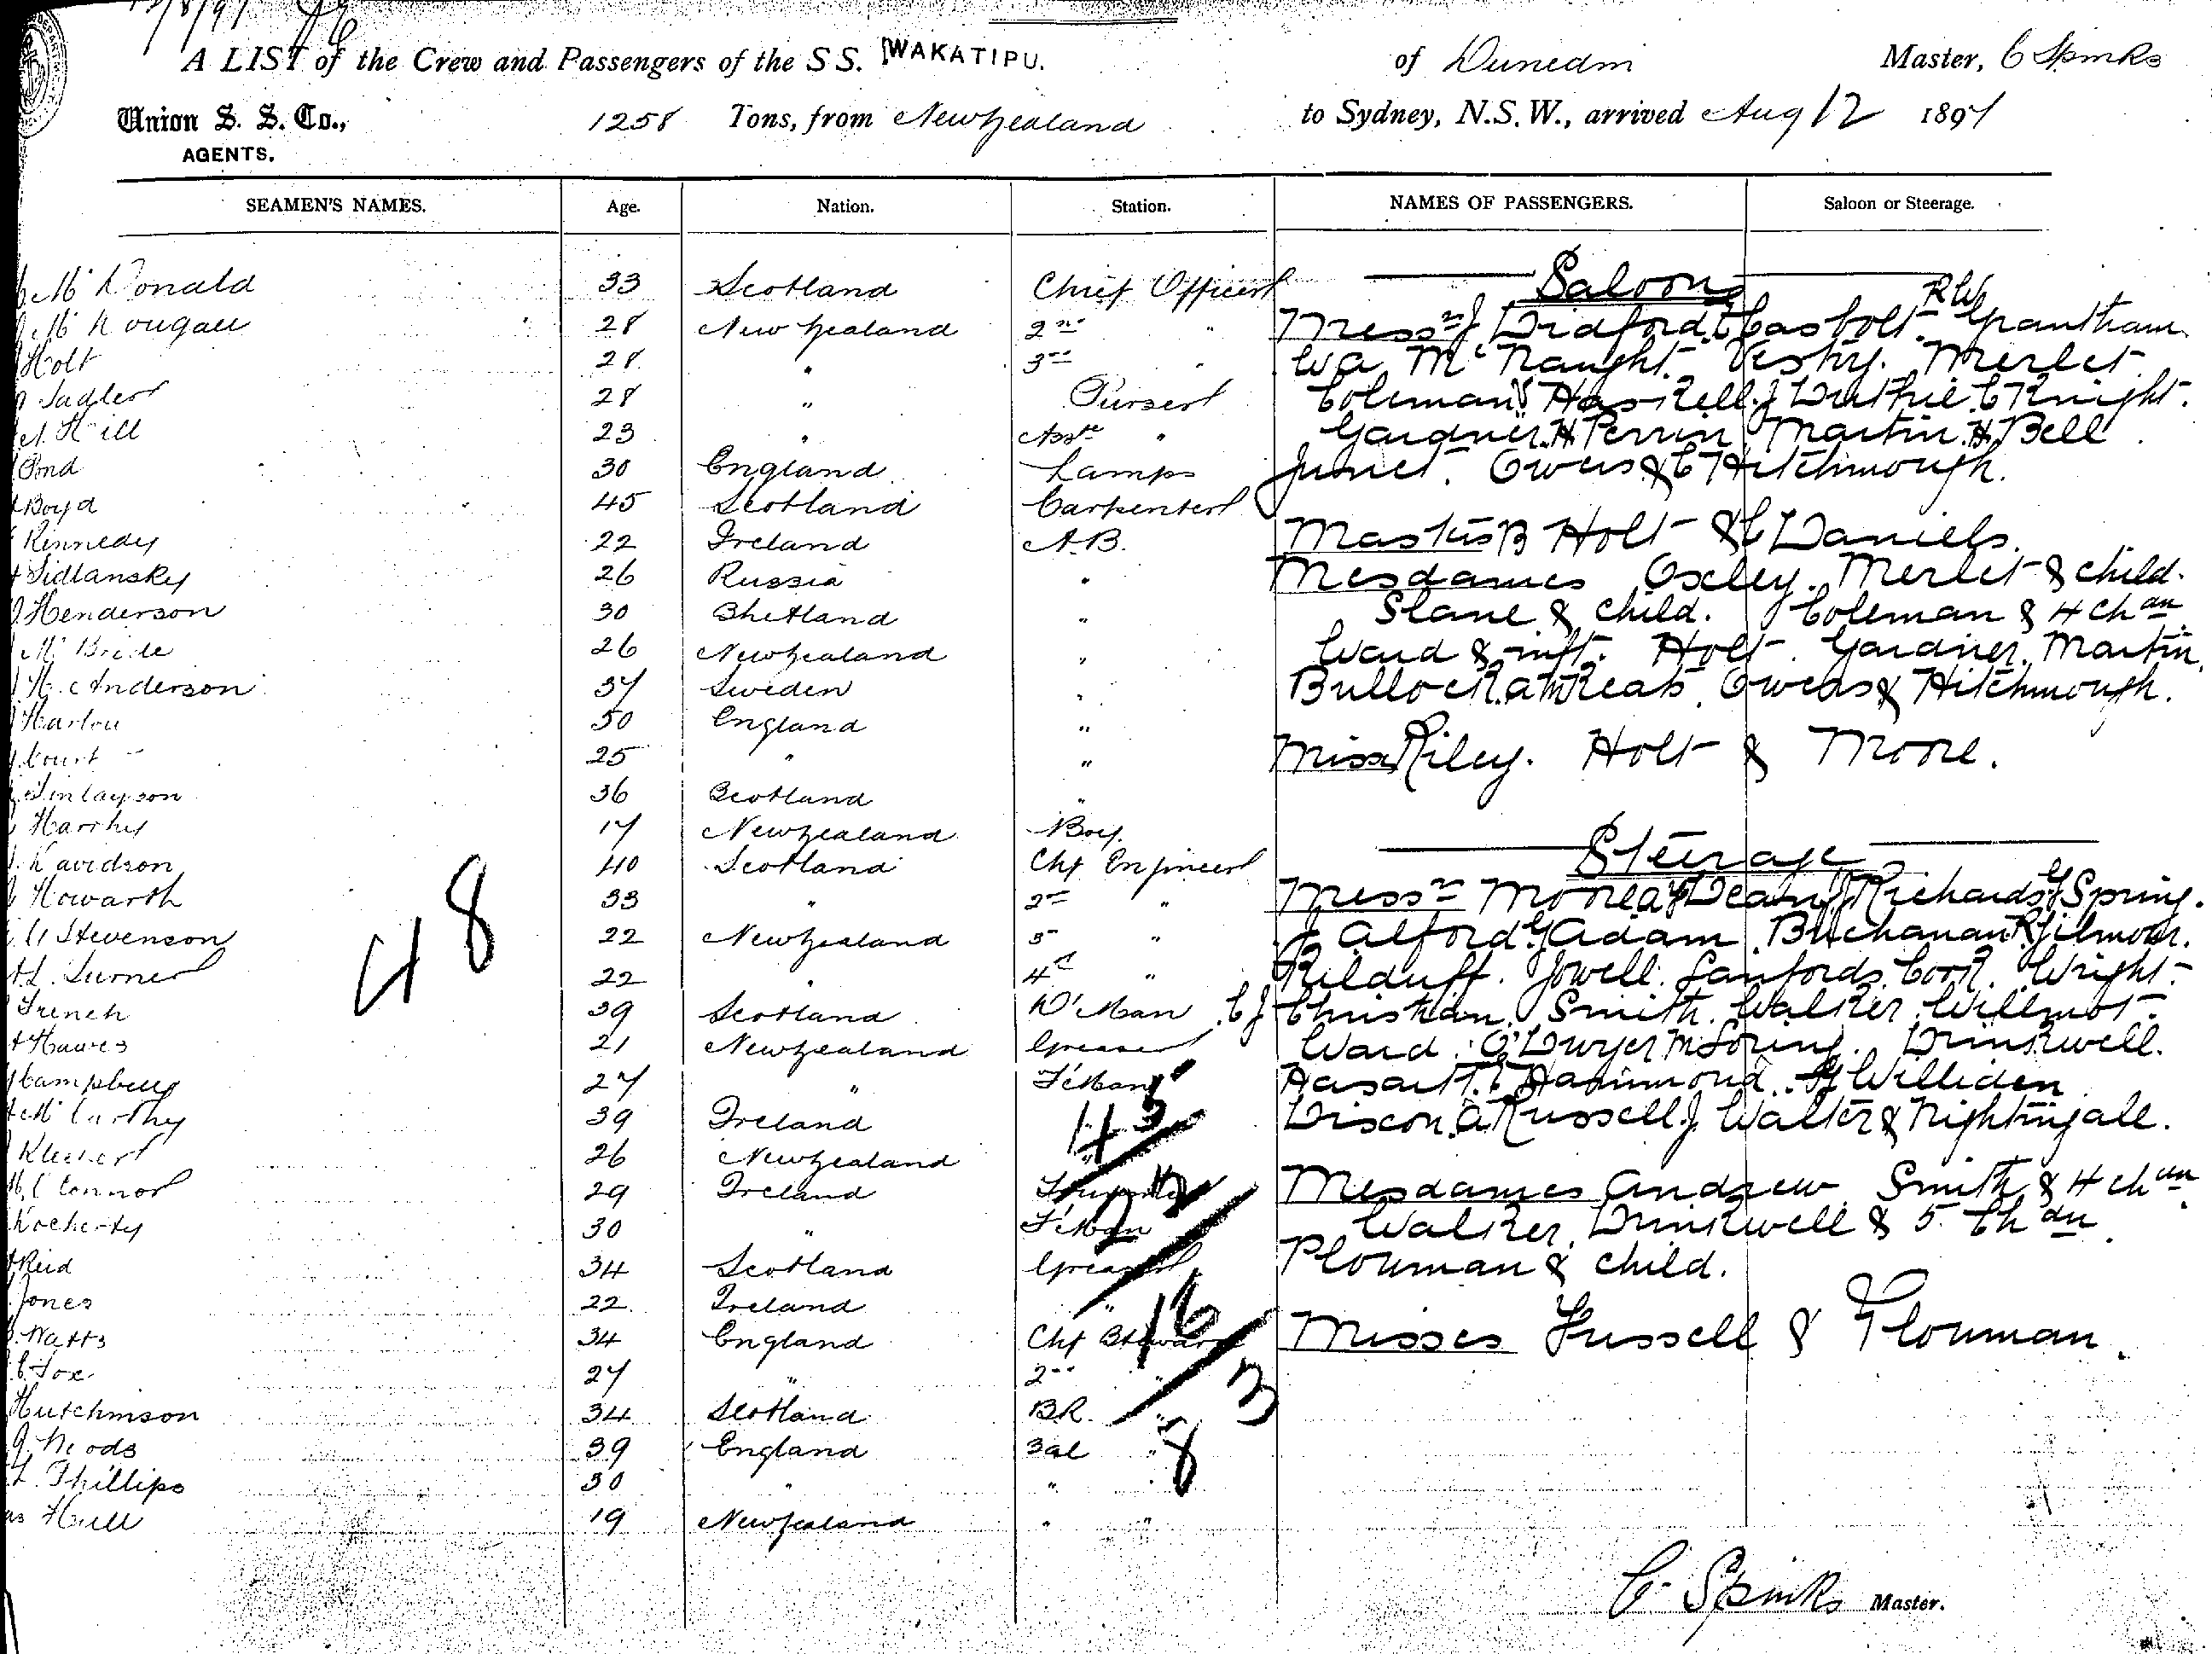 12/8/97
A LIST of the Crew and Passengers of the S S. WAKATIPU. of Dunedin Master, C Spinks
Union S. S. Co., 1258 Tons, from New Zealand to Sydney, N.S.W., arrived Aug 12 1897
AGENTS.
SEAMEN'S NAMES. Age. Nation. Station. NAMES OF PASSENGERS. Saloon or Steerage.
McDonald 33 Scotland Chief Officer
McDougall 28 New Zealand 2nd "
Holt 28 " 3rd "
Sadler 28 " Purser
Hill 23 " Asst "
Pond 30 England Lamps
Boyd 45 Scotland Carpenter
Kennedy 22 Ireland A.B.
Sidlansky 26 Russia "
Henderson 30 Shetland "
McBride 26 New Zealand "
Anderson 37 Sweden "
Harlow 50 England "
Court 25 " "
Finlayson 36 Scotland "
Harrhy 17 New Zealand Boy.
Davidson 40 Scotland Chf Engineer
Howarth 33 " 2nd "
Stevenson 22 New Zealand 3rd "
Turner 22 " 4th "
French 39 Scotland D'Man
Hawes 21 New Zealand Greaser
Campbell 27 " F'Man
McCarthy 39 Ireland
Kleeber 26 New Zealand
O Connor 29 Ireland
Docherty 30 " F'Man
Reid 34 Scotland Greaser
Jones 22 Ireland "
Watts 34 England Chf Steward
Fox 27 " 2nd "
Hutchinson 34 Scotland BR. "
Woods 39 England Sal "
Phillips 30 " "
Hill 19 New Zealand " "
48
45
2
16
3
8
Saloon
Messrs J Didford. C Casbolt. RW Grantham
WA McNaught. Vestry. Merlet.
Coleman Haskell. J Duthie. C Knight.
Gardner. H Perrin. Martin. H Bell.
Junet. Owens & C Hitchmough.
Masters B Holt & C Daniels.
Mesdames Oxley. Merlet & child.
Slane & child. Coleman & 4 chdn.
Ward & inft. Holt. Gardner. Martin.
Bullock. Owens & Hitchmough.
Miss Riley. Holt & Moore.
Steerage
Messrs Moore Dean Richards Spring.
J Alford. G Adam. Buchanan. R Gilmour.
Kilduff. Jowell. Sanfords. Cook. Wright.
C J Christian. Smith. Walker. Willmot.
Ward. O'Dwyer. M Loring. Drinkwell.
Hammond. Williden
Dixon. A Russell. J Walter & Nightingale.
Mesdames Andrew. Smith & 4 chdn.
Walker. Drinkwell & 5 chdn.
Plowman & child.
Misses Fussell & Plowman.
C. Spinks Master.